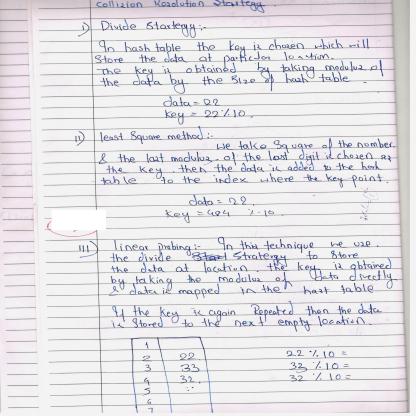 Collision Resolution Startegy
i) Divide Startegy:-
In hash table the key is chosen which will
store the data at particular location.
The key is obtained by taking modulus of
the data by the size of hash table.
data = 22
key = 22 % 10.
ii) least Square method:-
we take square of the number
& the last modulus of the last digit is chosen as
the key. then the data is added to the hash
table to the index where the key point.
data = 22.
key = 484 % 10
iii) linear probing:- In this technique we use
the divide Stratergy to store
the data at location the key is obtained
by taking the modulus of data directly
& data is mapped in the hast table
If the key is again Repeated then the data
is stored to the next empty location.
1
2 22 22 % 10 =
3 33 33 % 10 =
4 32. 32 % 10 =
5
6
7